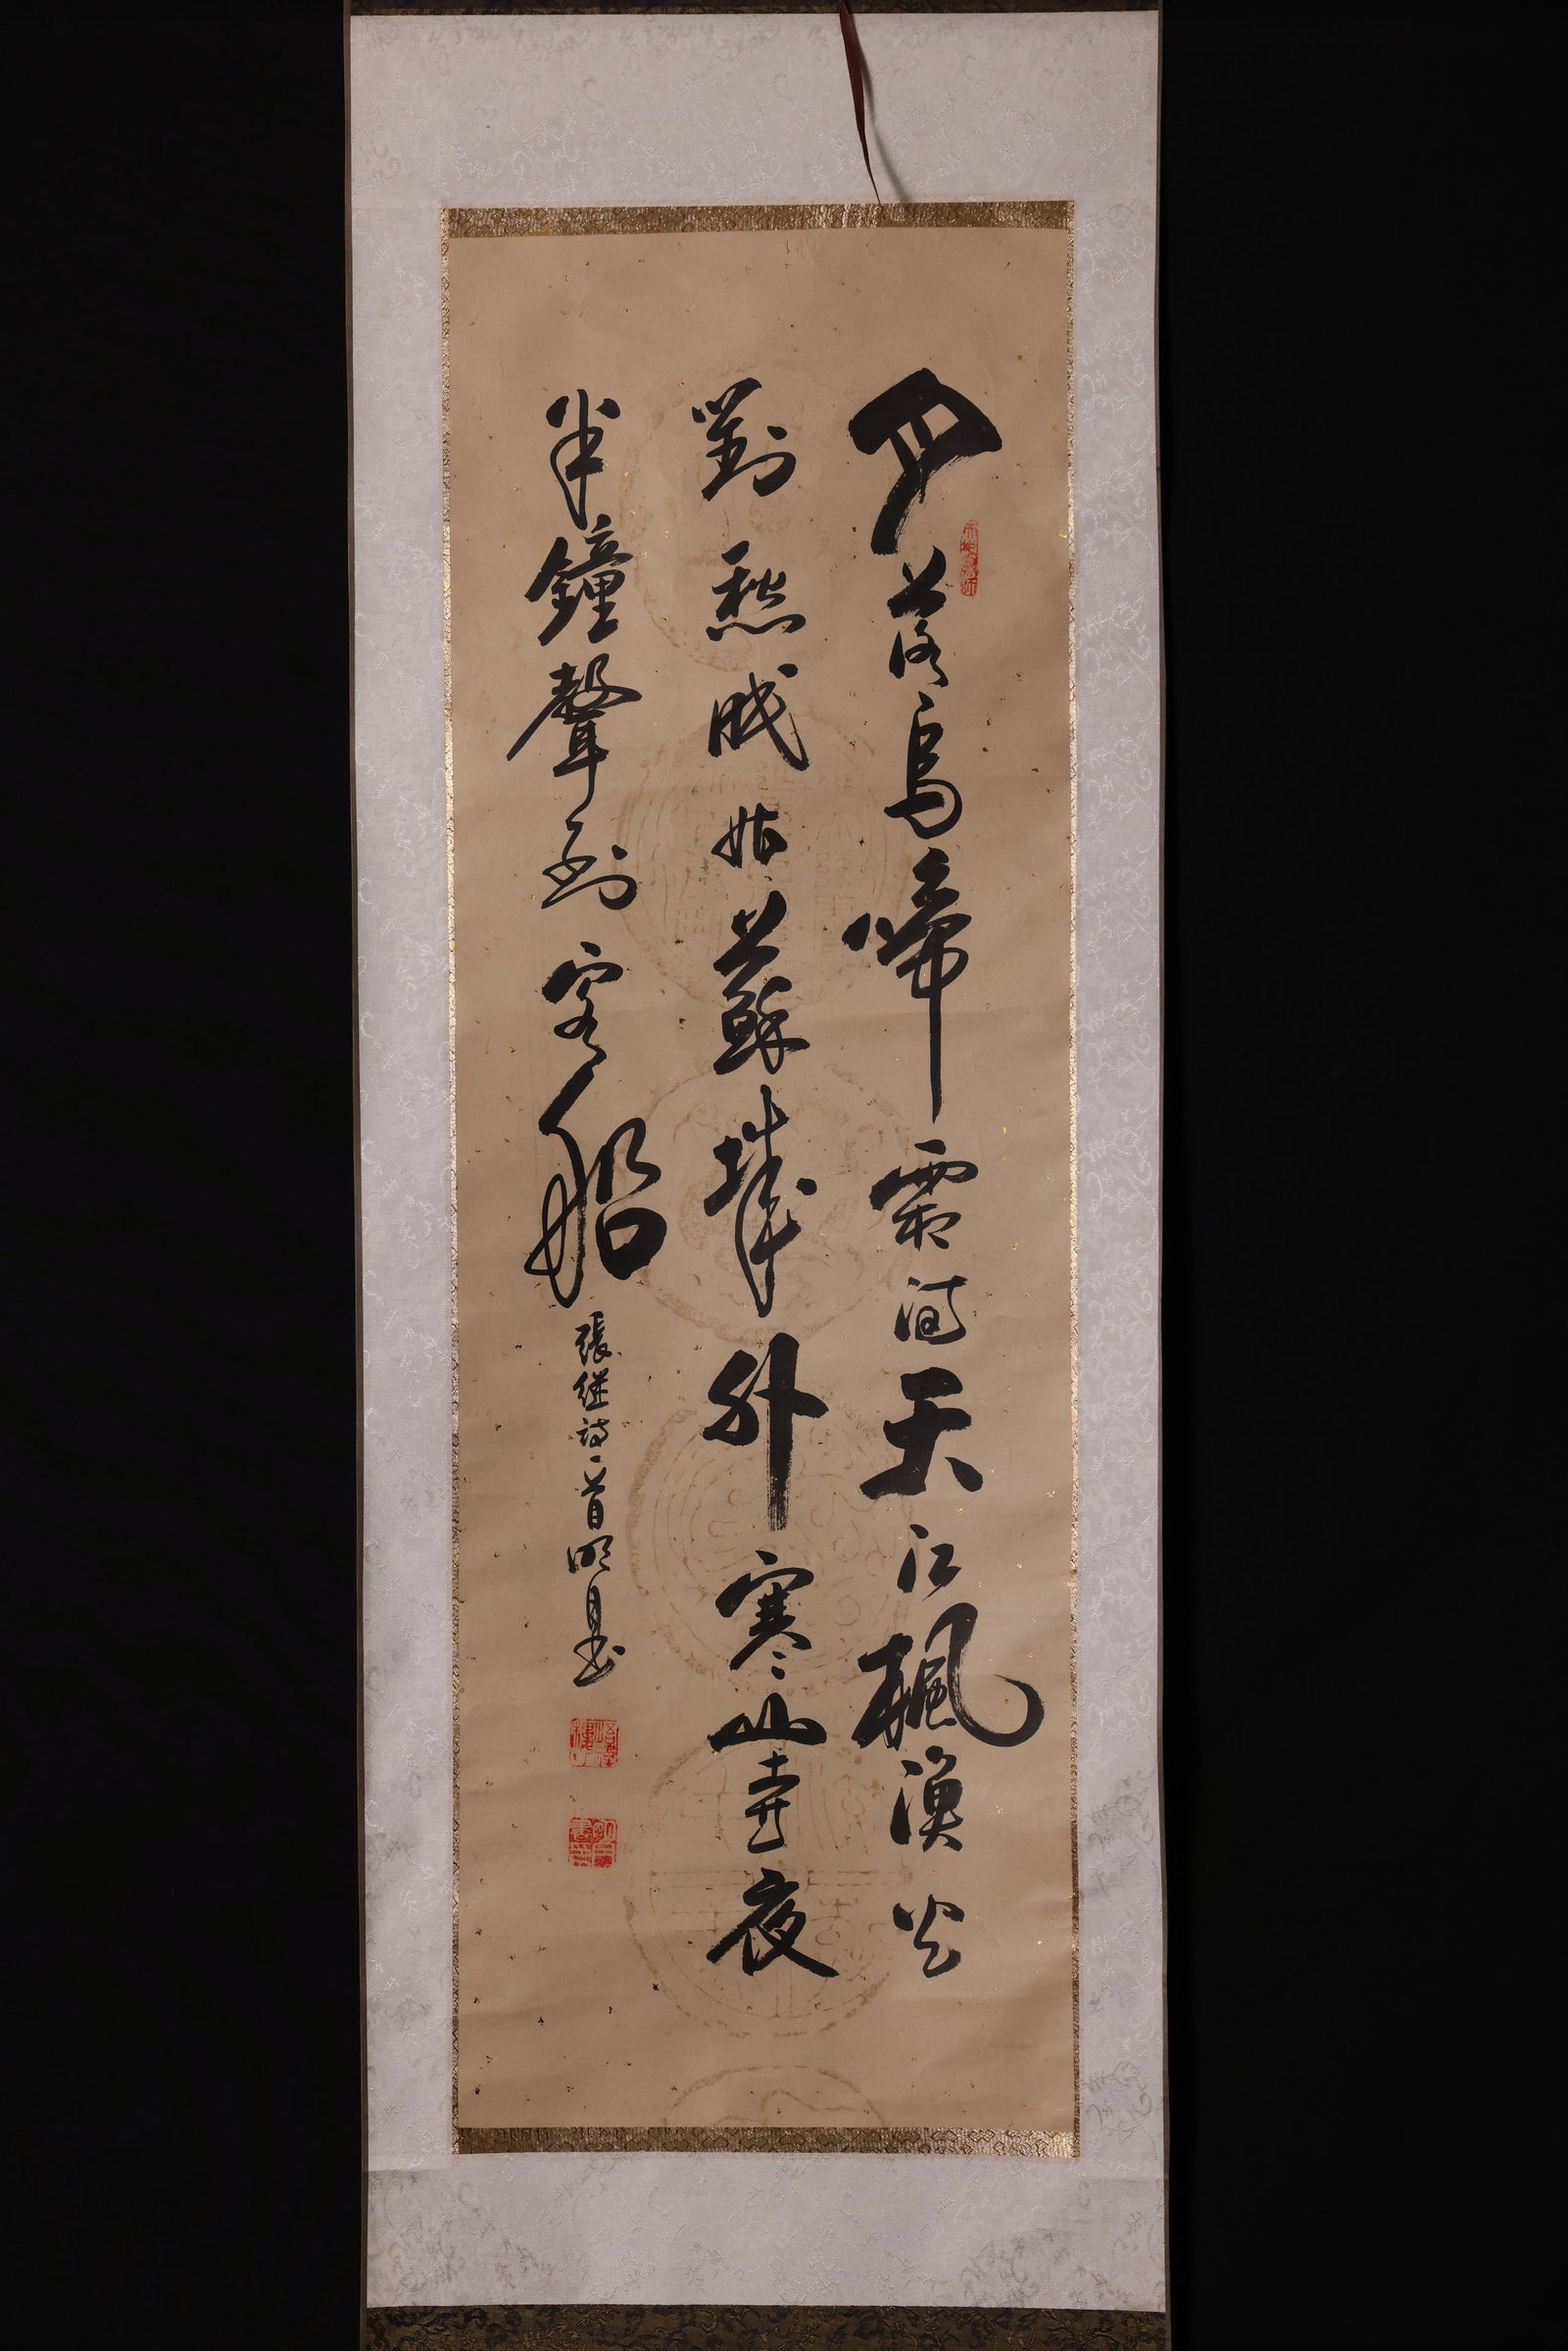 月落烏啼霜滿天江楓漁火
對愁眠姑蘇城外寒山寺夜
半鐘聲到客船
張継詩一首明